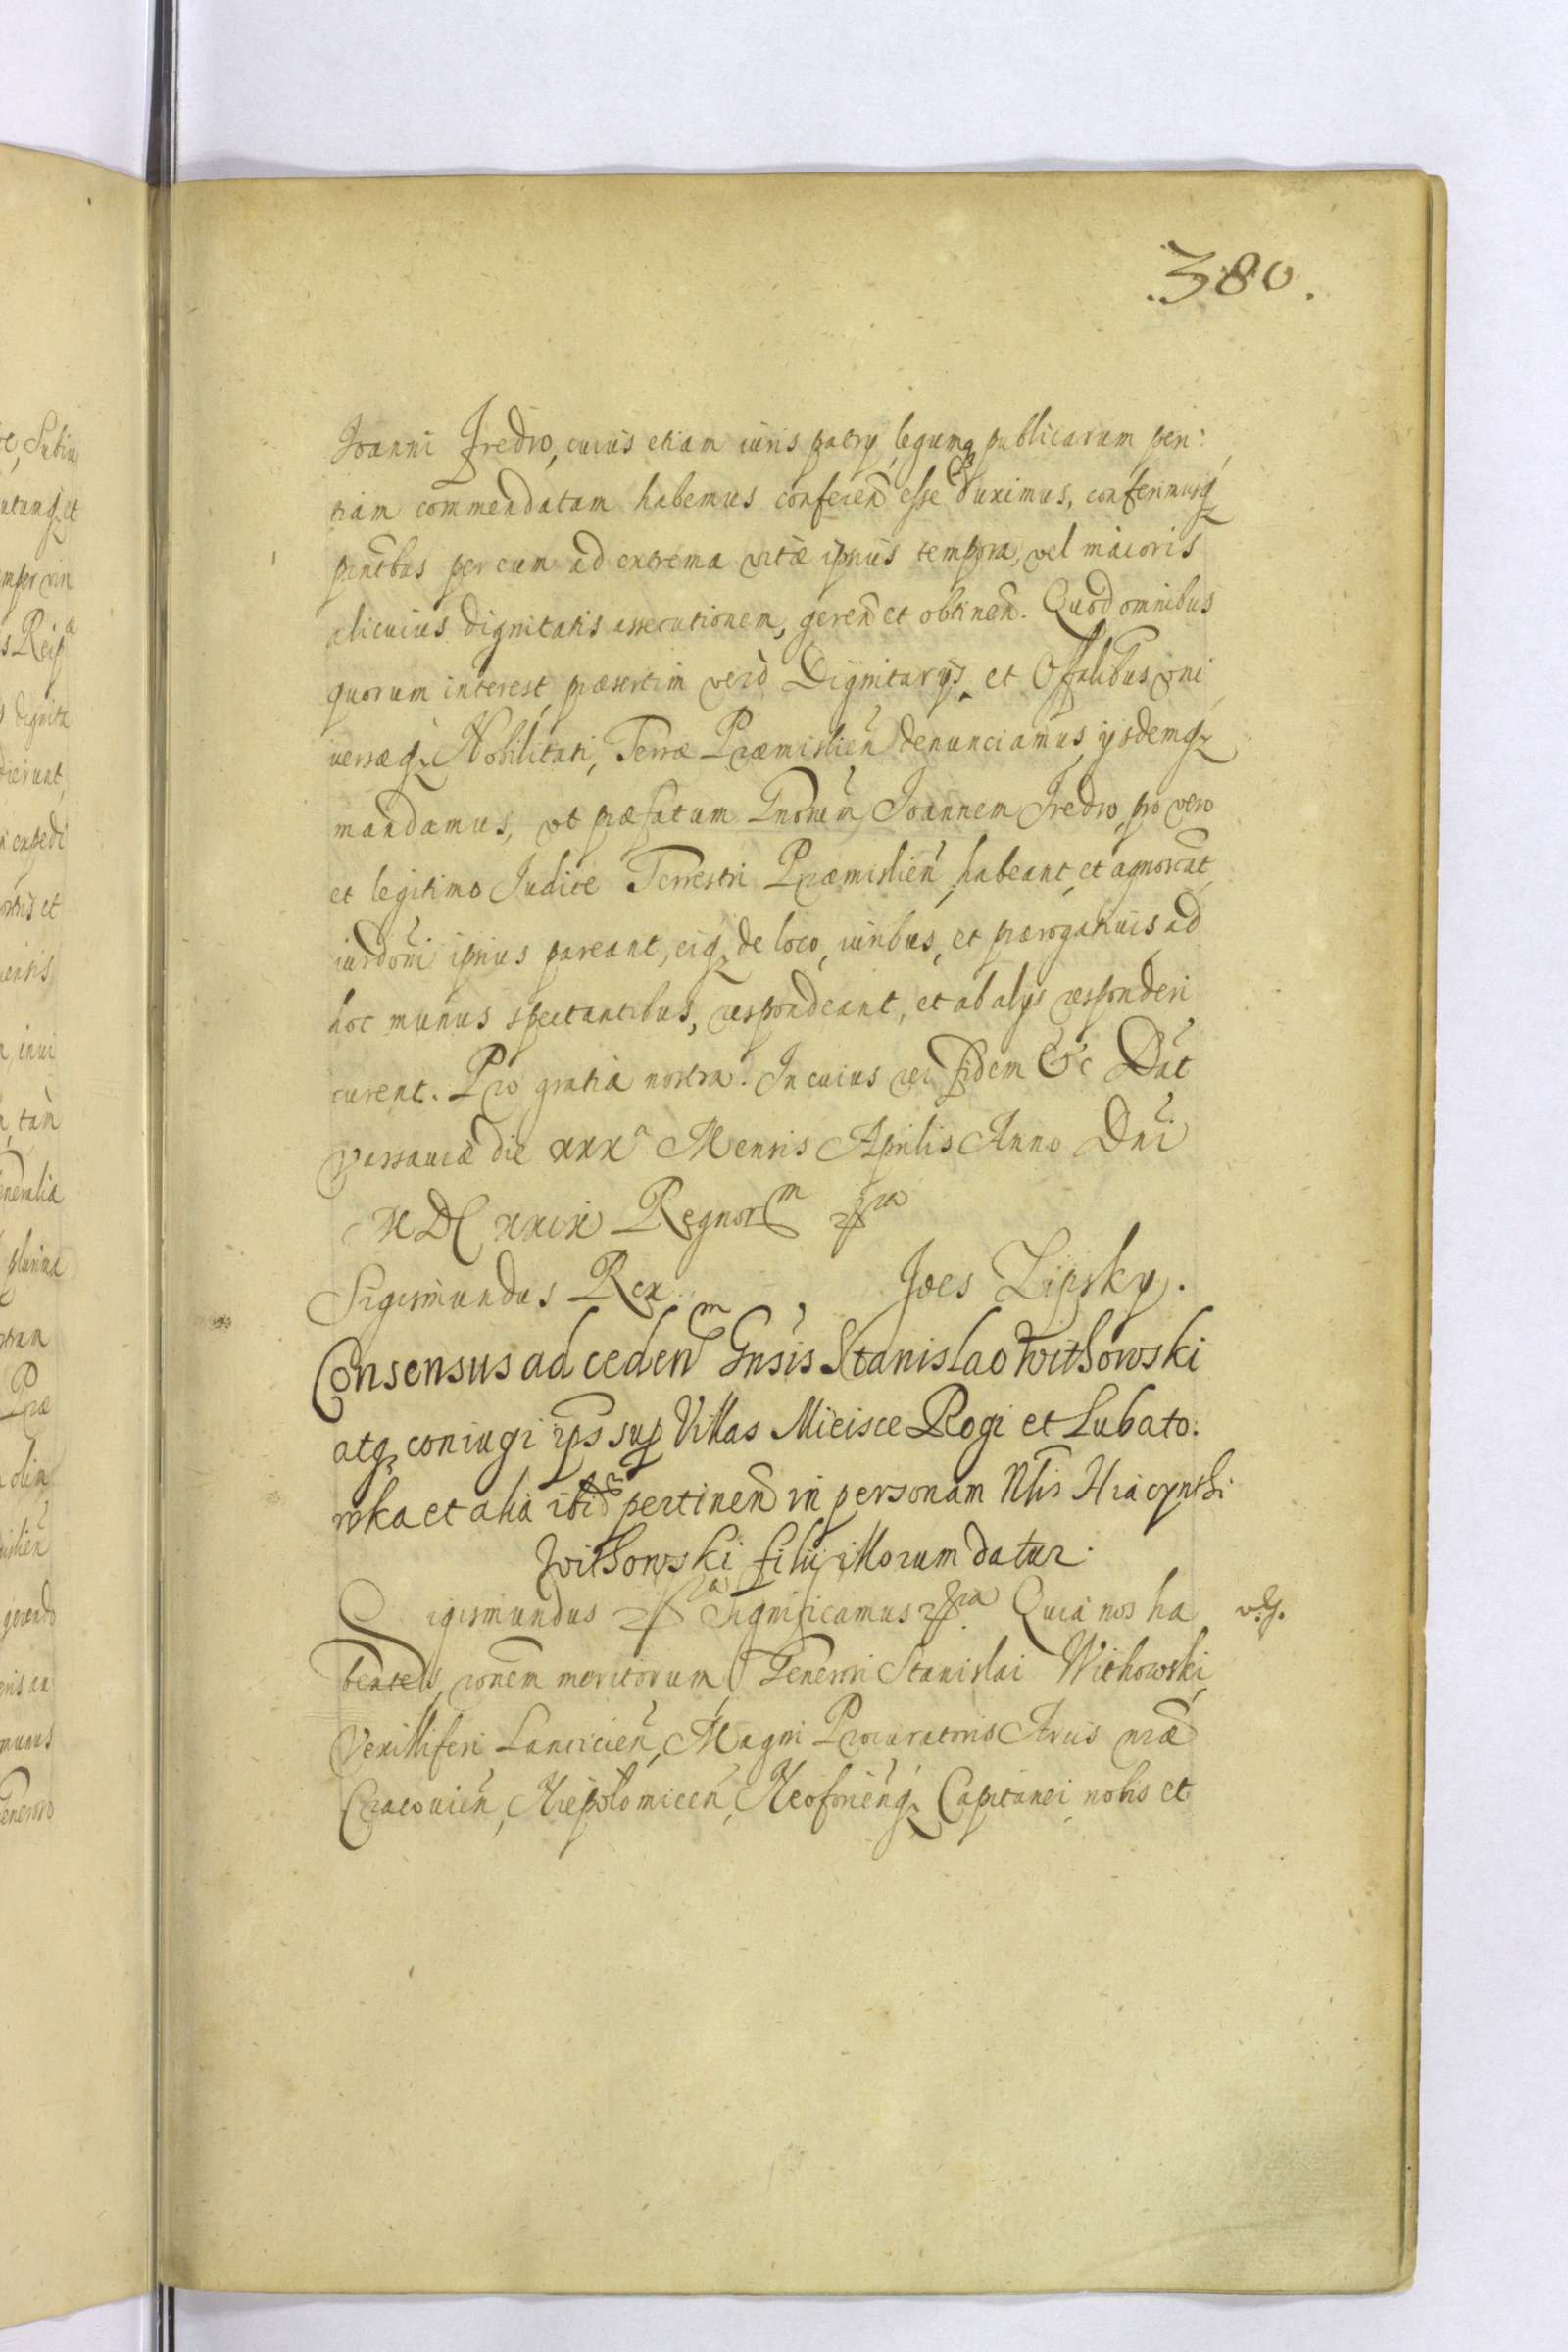 .380.
Joanni Fredro, cuius etiam iuris patry, legumq publicarum peri:
tiam commendatam habemus conferen̄ esse duximus, conferimusq
pn̄tbus per eum ad extrema vitæ ipsius tempora, vel maioris
alicuius dignitatis assecutionem, geren̄ et obtinen̄. Quod omnibus
quorum interest, præsertim verò Dignitarijs, et Offalibus vni
versæq Nobilitati, Terræ Præmislien̄ denunciamus, ijsdemq
mandamus, vt præfatum Gnosum Joannem Fredro, pro vero
et legitimo Judice Terrestri Præmislien̄, habeant, et agnoscāt,
iurdoni ipsius pareant, eiq, de loco, iuribus, et prærogatiuis ad
hoc munus spectantibus, respondeant, et ab alijs responderi
curent. Pro gratia nostra. In cuius rei fidem &c Dat
Varsauiæ die xxxa Mensis Aprilis Anno Dni
MDCxxix Regnorm
Sigismundus Rex. Joes Lipsky.
Consensus ad cedenm Gnsis Stanislao Withowski
atq coniugi ips sup Villas Mieisce Rogi et Lubato:
wka et alia ibid pertinen̄ in personam Nlis Hiacynthi
Withowski filii illorum datur.
Sigismundus Significamus Quia nos ha v.g.
bentes, ronem meritorum Generosi Stanislai Withowski,
Vexilliferi Lancicien̄, Magni Procuratoris Arcis nræ
Cracouien̄, Niepolomicen̄, Neoforien̄q Capitanei nobis et